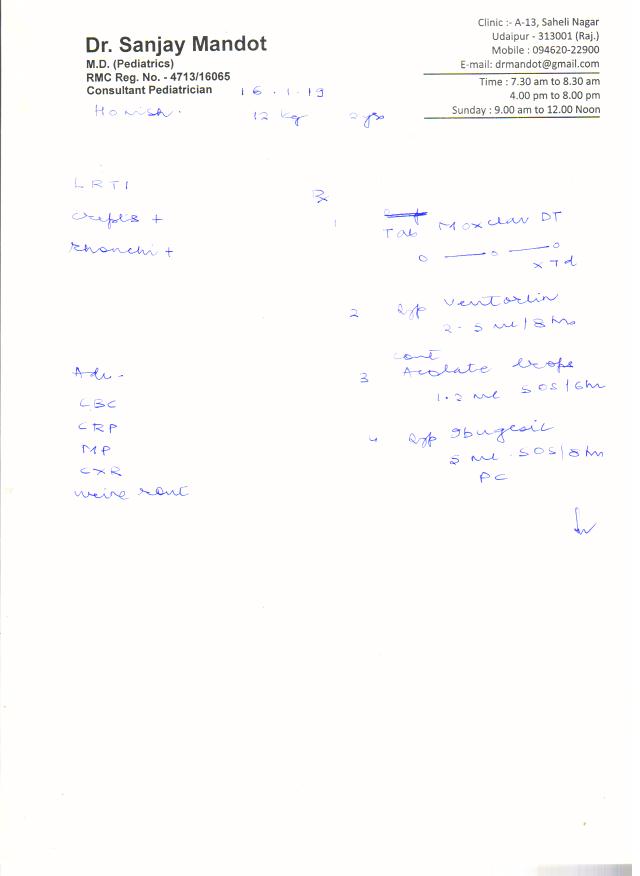 Dr. Sanjay Mandot
M.D. (Pediatrics)
RMC Reg. No. - 4713/16065
Consultant Pediatrician
Clinic :- A-13, Saheli Nagar
Udaipur - 313001 (Raj.)
Mobile : 094620-22900
E-mail: drmandot@gmail.com
Time : 7.30 am to 8.30 am
4.00 pm to 8.00 pm
Sunday : 9.00 am to 12.00 Noon
16.1.19
12 kg 2 yrs
LRTI
crepts +
Rhonchi +
Adv -
CBC
CRP
MP
CXR
Rx
1 Tab Moxclav DT
0 — 0 — 0
x 7d
2 Syp Ventorlin
2.5 ml / 8 hrs
3 drops
1.2 ml SOS / 6hr
4 Syp Ibugesic
5 ml SOS / 8 hr
PC